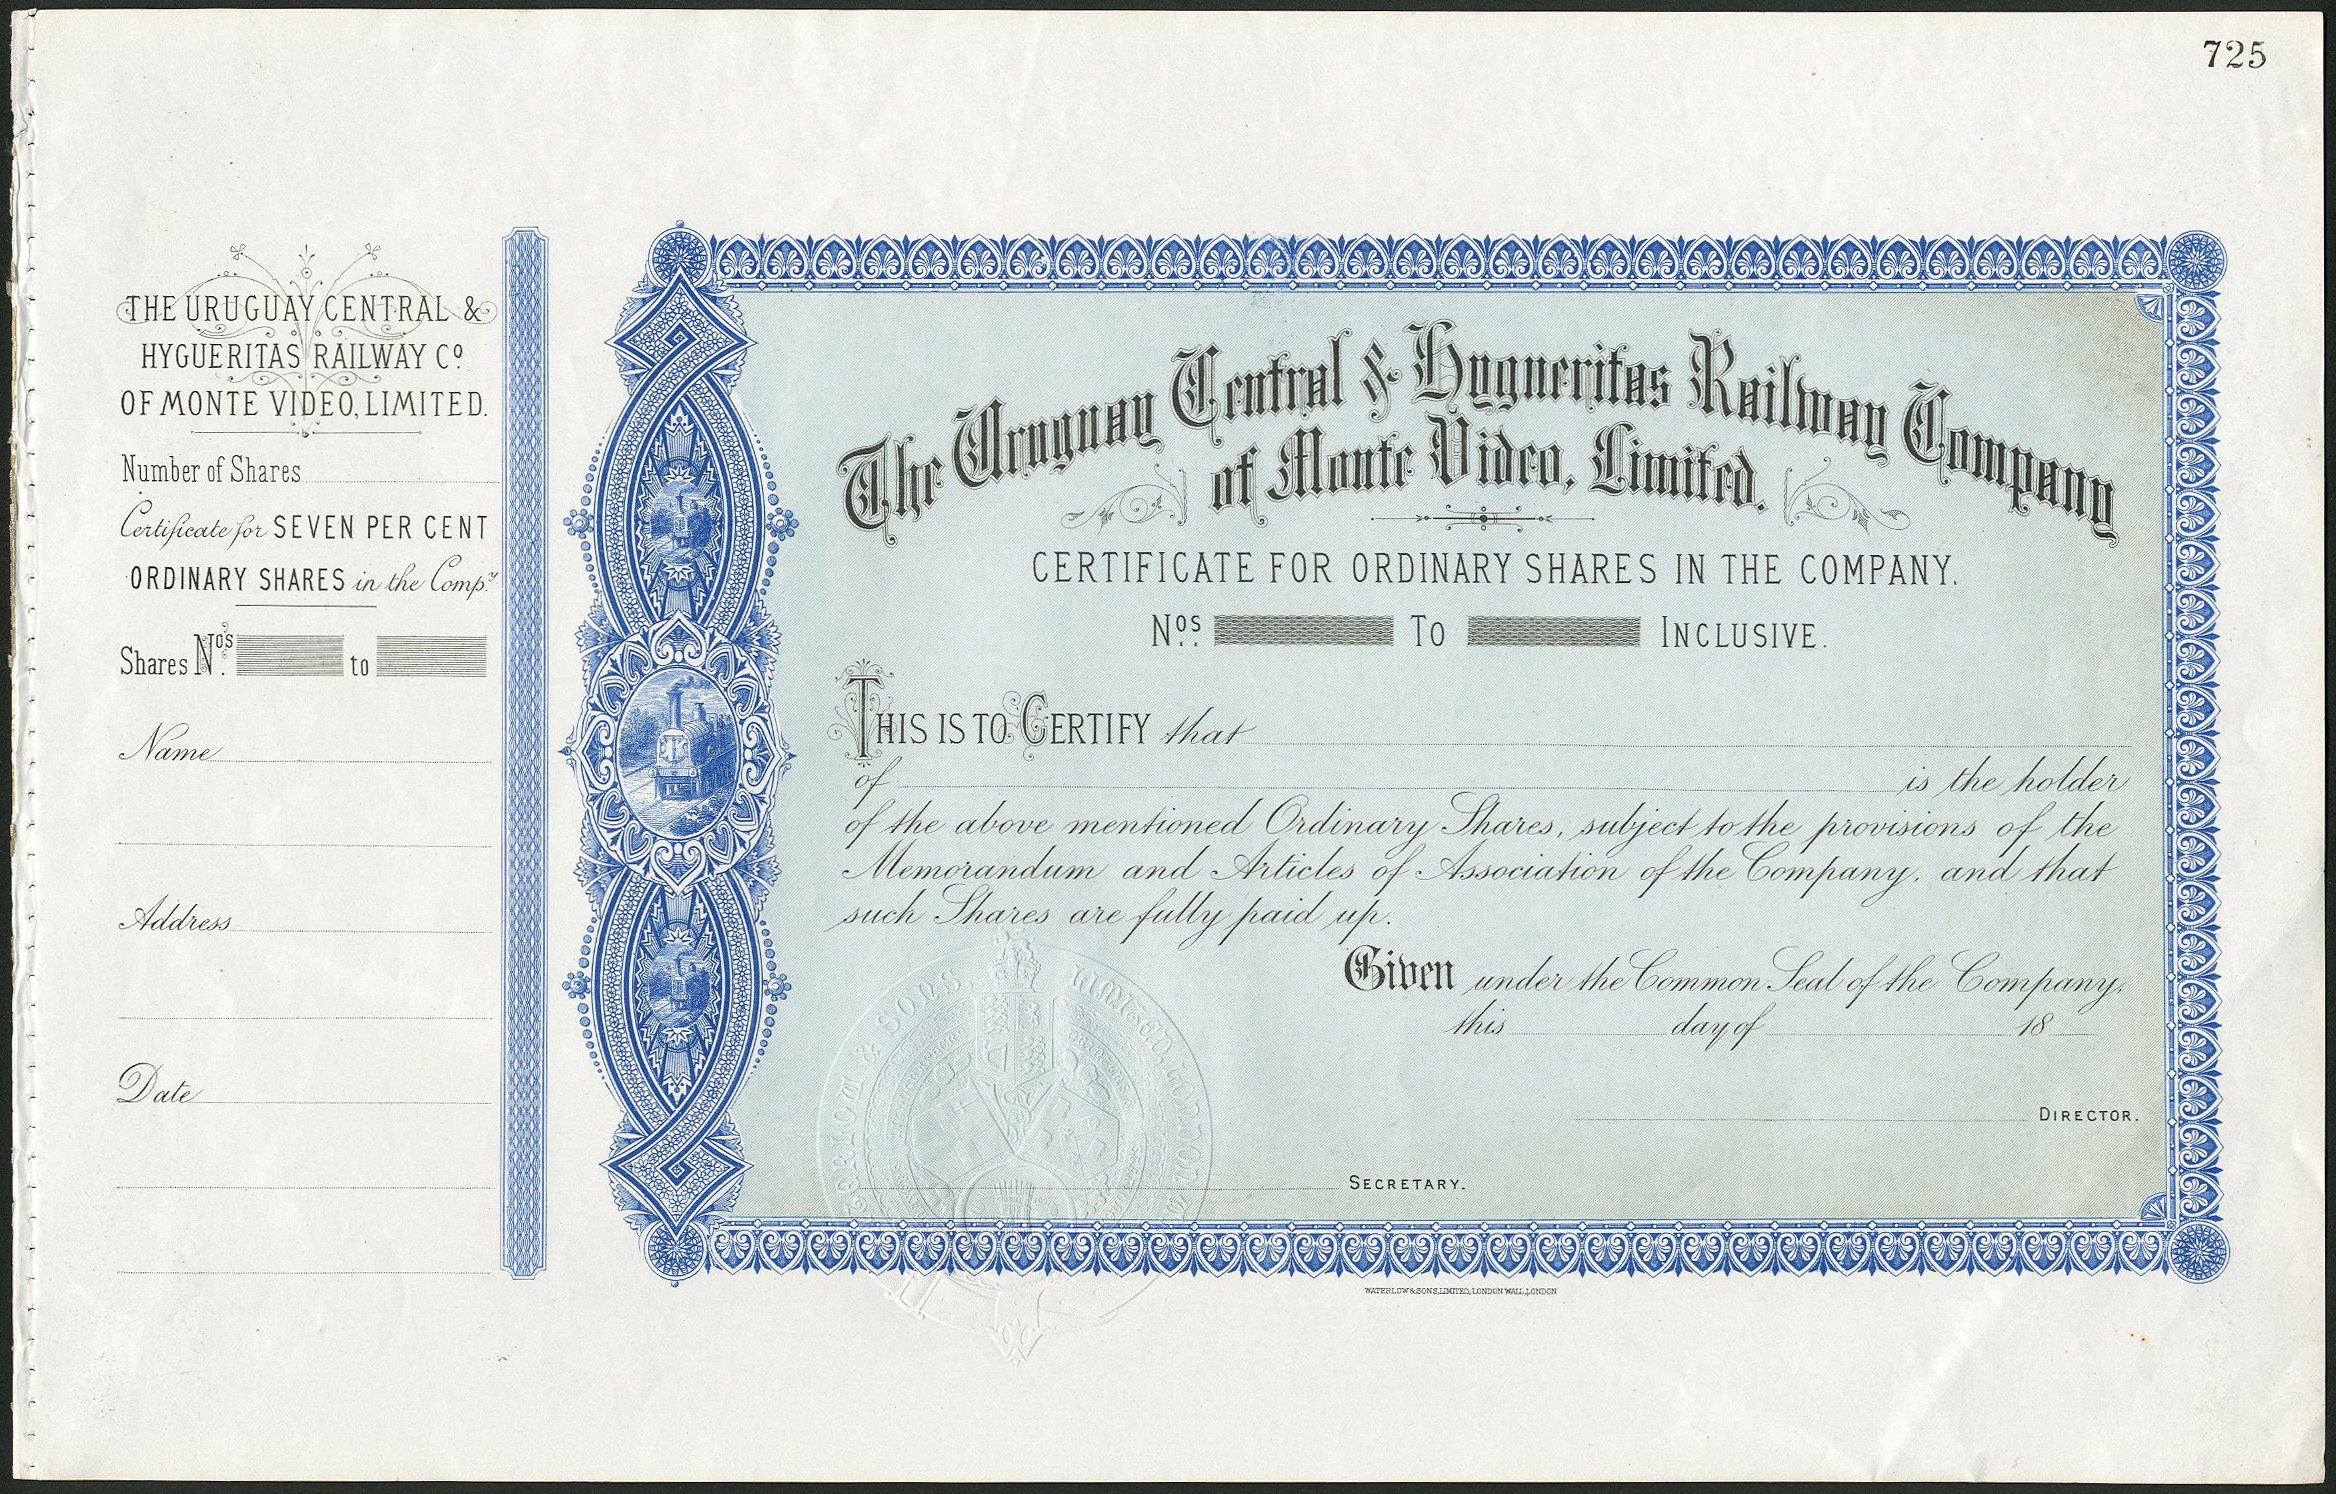 725
THE URUGUAY CENTRAL &
HYGUERITAS RAILWAY Cº
OF MONTE VIDEO, LIMITED.
Number of Shares
Certificate for SEVEN PER CENT
ORDINARY SHARES in the Compy
Shares Nos. to
Name
Address
Date
The Uruguay Central & Hygueritas Railway Company
of Monte Video, Limited.
CERTIFICATE FOR ORDINARY SHARES IN THE COMPANY.
Nos. To INCLUSIVE.
THIS IS TO CERTIFY that
of is the holder
of the above mentioned Ordinary Shares, subject to the provisions of the
Memorandum and Articles of Association of the Company, and that
such Shares are fully paid up.
Given under the Common Seal of the Company,
this day of 18
DIRECTOR.
SECRETARY.
& SONS, LIMITED, LONDON W
WATERLOW & SONS, LIMITED, LONDON WALL, LONDON